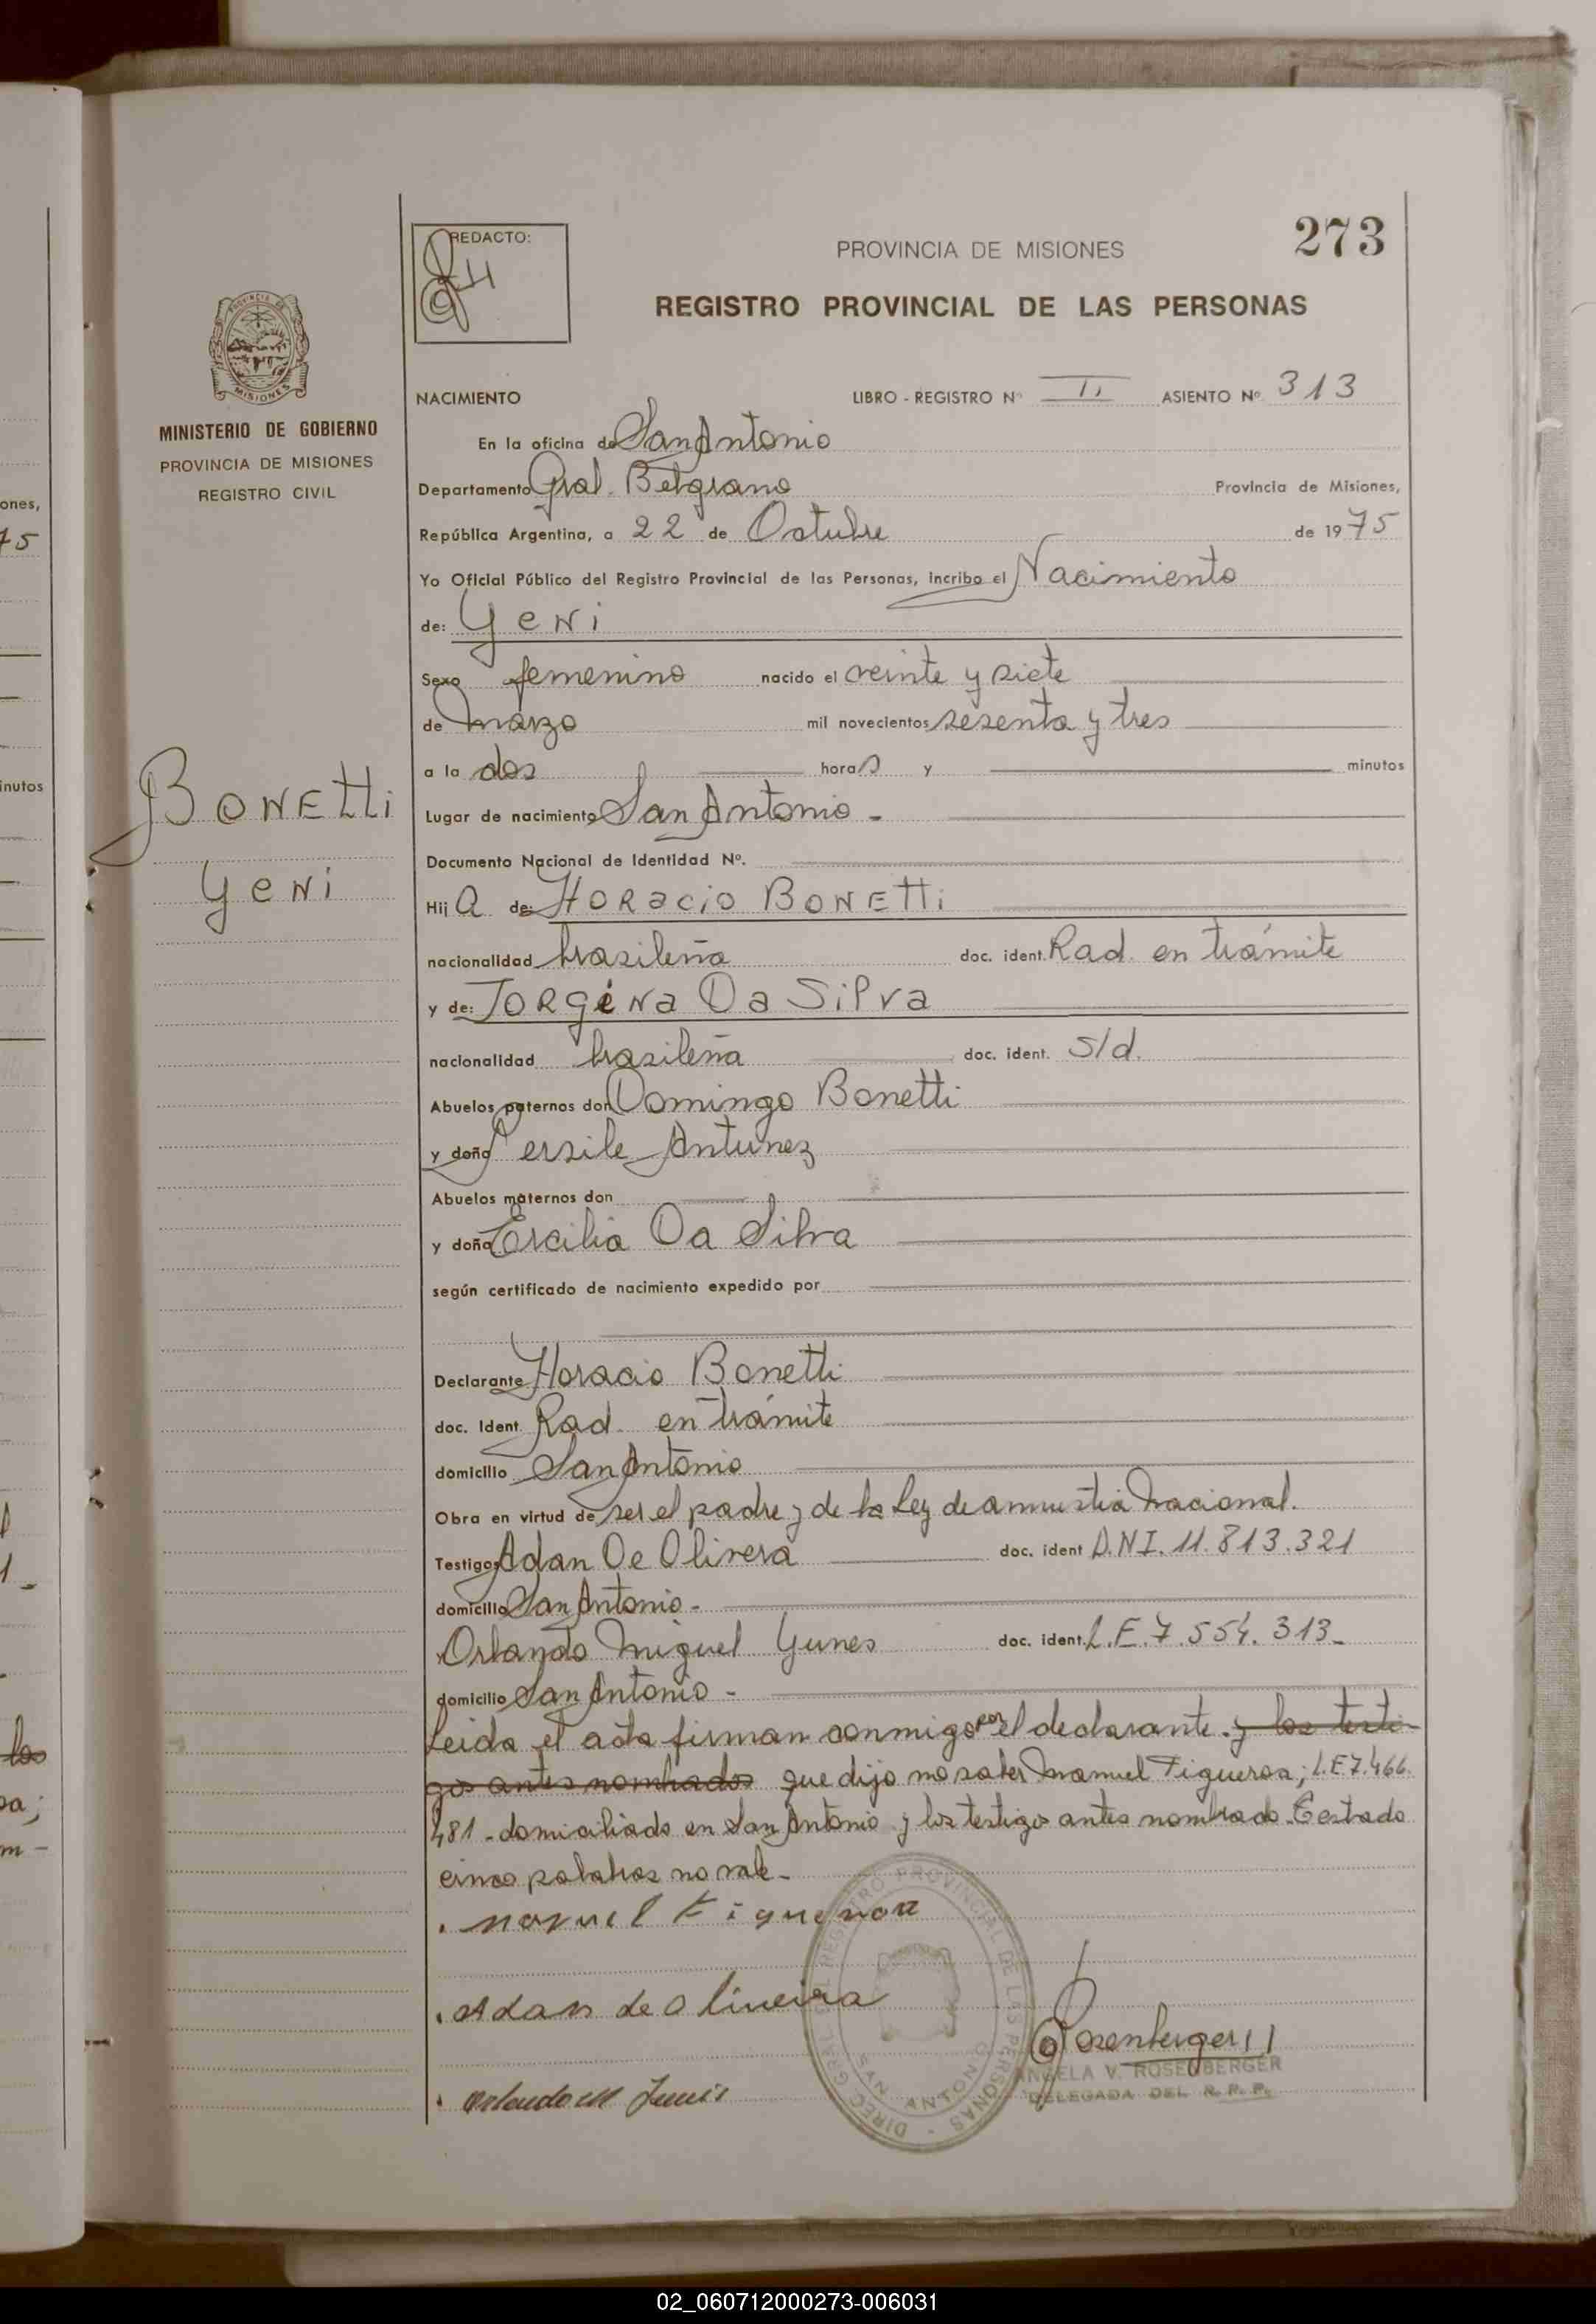 273
REDACTO:
PROVINCIA DE MISIONES
REGISTRO PROVINCIAL DE LAS PERSONAS
MINISTERIO DE GOBIERNO
PROVINCIA DE MISIONES
REGISTRO CIVIL
NACIMIENTO LIBRO - REGISTRO Nº II ASIENTO Nº 313
En la oficina de San Antonio
Departamento Gral. Belgrano Provincia de Misiones,
República Argentina, a 22 de Octubre de 1975
Yo Oficial Público del Registro Provincial de las Personas, incribo el Nacimiento
de: Yeni
Sexo femenino nacido el veinte y siete
de marzo mil novecientos sesenta y tres
a la dos horas y minutos
Bonetti
Yeni
Lugar de nacimiento San Antonio -
Documento Nacional de Identidad Nº.
Hija de: Horacio Bonetti
nacionalidad brasileña doc. ident. Rad. en trámite
y de: Jorgena Da Silva
nacionalidad brasileña doc. ident. s/d.
Abuelos paternos don Domingo Bonetti
y doña Persile Antunez
Abuelos maternos don
y doña Ercilia Da Silva
según certificado de nacimiento expedido por
Declarante Horacio Bonetti
doc. Ident. Rad. en trámite
domicilio San Antonio
Obra en virtud de ser el padre y de la Ley de amnistia Nacional.
Testigos Adan De Olivera doc. ident D.N.I. 11.813.321
domicilio San Antonio -
Orlando Miguel Yunes doc. ident. L.E. 7.554.313 -
domicilio San Antonio -
Leida el acta firman conmigo por el declarante y los testi-
gos antes nombrados que dijo no saber Manuel Figueroa; L.E. 7.466.
481 - domiciliado en San Antonio y los testigos antes nombrado. Testado
cinco palabras no vale -
. manuel Figueroa
. Adan de Oliveira
. Orlando M Yunis
Rosenberger
ANGELA V. ROSENBERGER
DELEGADA DEL R. P. P.
DIREC. GRAL. DEL REGISTRO PROVINCIAL DE LAS PERSONAS -
SAN ANTONIO
ones,
75
inutos
los
m -
02_060712000273-006031